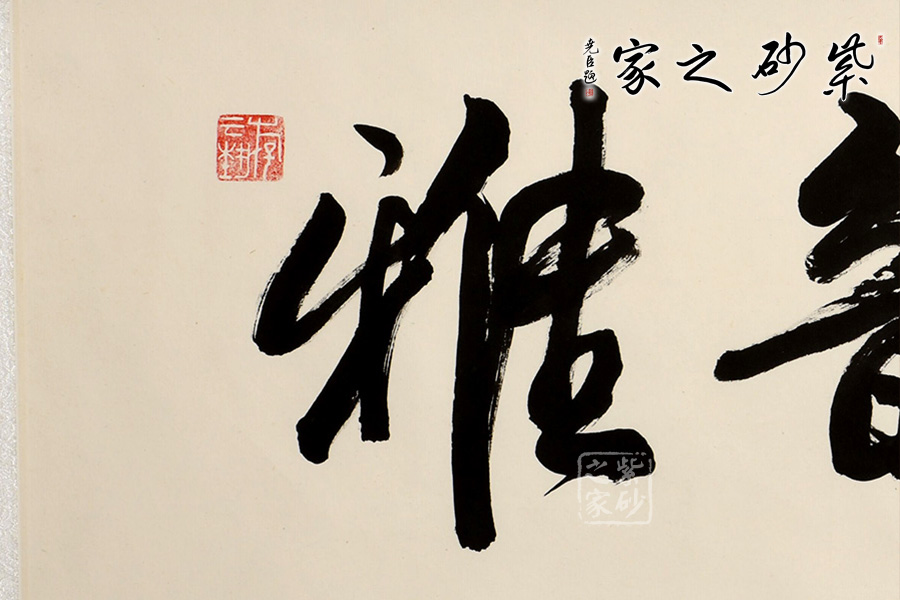 紫砂之家
尧臣题
雅
紫砂之家